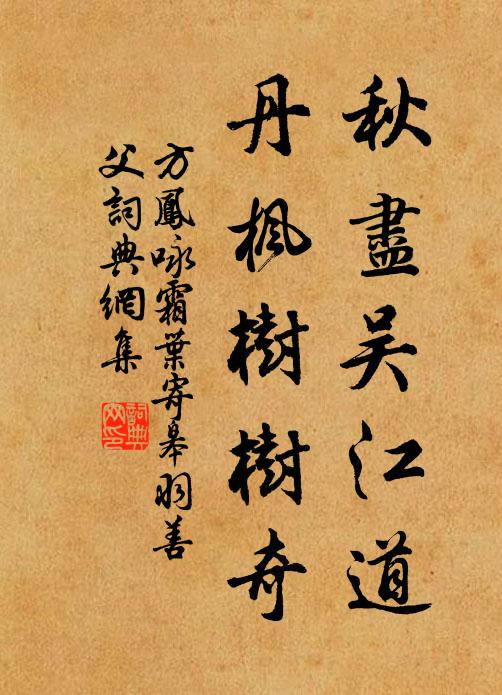 秋盡吴江道
丹楓樹樹奇
方鳳咏霜葉寄皋羽善
父詞典網集
詞典
网印